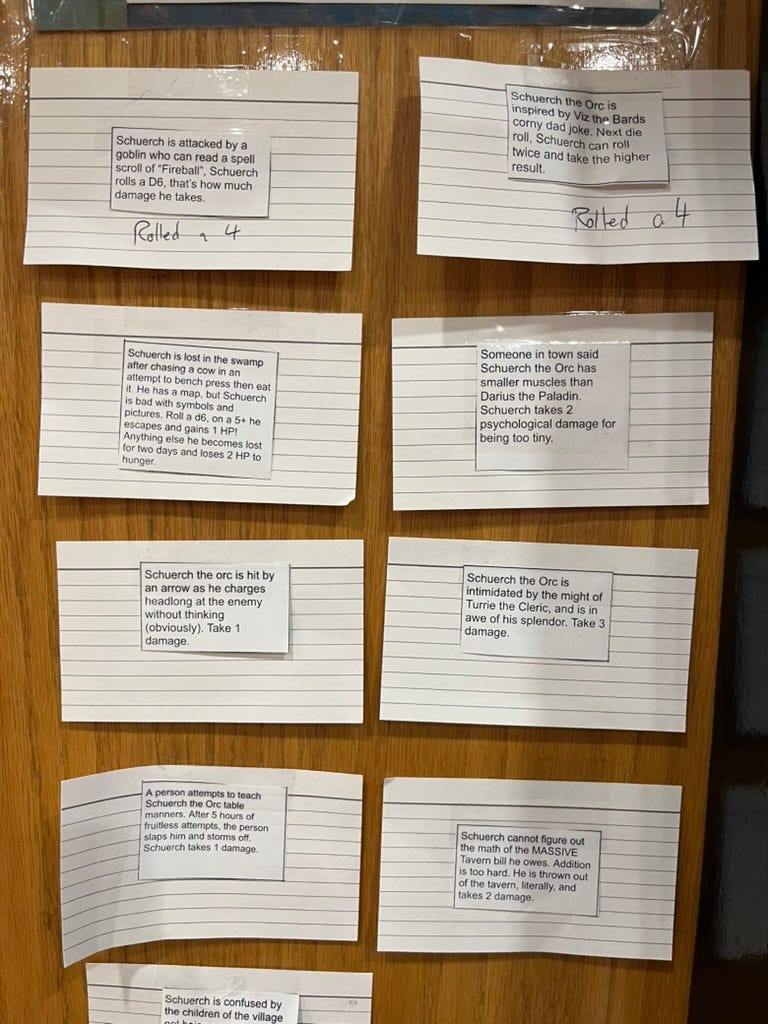 Schuerch is attacked by a
goblin who can read a spell
scroll of "Fireball", Schuerch
rolls a D6, that's how much
damage he takes.
Rolled a 4
Schuerch the Orc is
inspired by Viz the Bards
corny dad joke. Next die
roll, Schuerch can roll
twice and take the higher
result.
Rolled a 4
Schuerch is lost in the swamp
after chasing a cow in an
attempt to bench press then eat
it. He has a map, but Schuerch
is bad with symbols and
pictures. Roll a d6, on a 5+ he
escapes and gains 1 HP!
Anything else he becomes lost
for two days and loses 2 HP to
hunger.
Someone in town said
Schuerch the Orc has
smaller muscles than
Darius the Paladin.
Schuerch takes 2
psychological damage for
being too tiny.
Schuerch the orc is hit by
an arrow as he charges
headlong at the enemy
without thinking
(obviously). Take 1
damage.
Schuerch the Orc is
intimidated by the might of
Turrie the Cleric, and is in
awe of his splendor. Take 3
damage.
A person attempts to teach
Schuerch the Orc table
manners. After 5 hours of
fruitless attempts, the person
slaps him and storms off.
Schuerch takes 1 damage.
Schuerch cannot figure out
the math of the MASSIVE
Tavern bill he owes. Addition
is too hard. He is thrown out
of the tavern, literally, and
takes 2 damage.
Schuerch is confused by
the children of the village